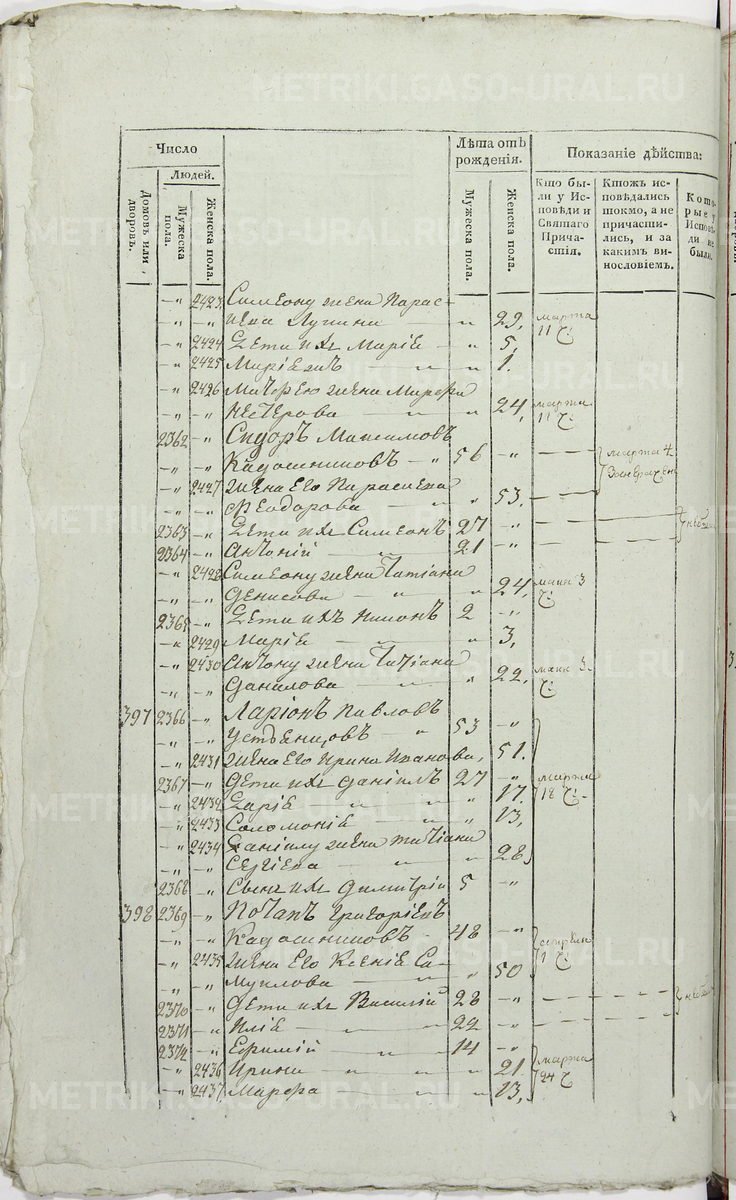 METRIKI.GASO-URAL.RU
Число
Людей.
Домовъ или дворовъ.
Мужеска пола.
Женска пола.
Лѣта отъ рожденія.
Мужеска пола.
Женска пола.
Показаніе дѣйства:
Кто бы-
ли у Ис-
повѣди и
Святаго
Прича-
стія.
Ктожъ ис-
повѣдались
токмо, а не
причасти-
лись, и за
какимъ ви-
нословіемъ.
Кото-
рые у
Исповѣ-
ди не
были.
-„ 2423 Симеону жена Парас-
-„ -„ кева Лупина — „ „ 29, марта 11 ч:
-„ 2424 Дети ихъ Маріѣ — „ 5,
-„ 2425 — „ 1.
-„ 2426 жена Марфа
-„ -„ Нестерова — „ „ 24, марта 11 ч:
2362 -„ Сидоръ Максимовъ
-„ -„ Кадошниковъ — „ 56 -„ — — марта 4
-„ 2427 жена Его Параскева
-„ -„ Ѳеодорова — „ „ 53, — —
2363 -„ Дети ихъ Симеонъ 27 -„ — —
2364 -„ Антоній — „ 21 -„ — —
-„ 2428 Симеону жена Татіана
-„ -„ Денисова — „ „ 24, маіа 3 ч:
2365 -„ Дети ихъ 2 -„
-„ 2429 Маріѣ — „ „ 3,
-„ 2430 Антону жена Татіана
-„ -„ Данилова — „ „ 22, маіа 3. ч:
397 2366 -„ Ларіонъ Павловъ
-„ -„ Устьенцовъ — „ 53 -„
-„ 2431 жена Его Ирина Иванова, 51.
2367 -„ Дети ихъ Даніилъ 27 -„ марта 18 ч:
-„ 2432 Даріѣ — „ „ 17.
-„ 2433 Соломоніѣ — „ „ 13,
-„ 2434 Даніилу жена Татіана
-„ -„ Сергіева — „ „ 28,
2368 -„ Сынъ ихъ Димитрій 5 -„
398 2369 -„ Потапъ Григоріевъ
-„ -„ Кадошниковъ — 48 -„
-„ 2435 жена Его Ксеніѣ Са-
-„ -„ муилова — „ 50
2370 -„ Дети ихъ Василій 28 -„ — —
2371 -„ Иліѣ — „ „ 22 -„ — —
2372 -„ Ефимій — „ „ 14 -„
-„ 2436 Ирина — „ „ „ 21. марта 24 ч
-„ 2437 Марфа — „ „ 13,